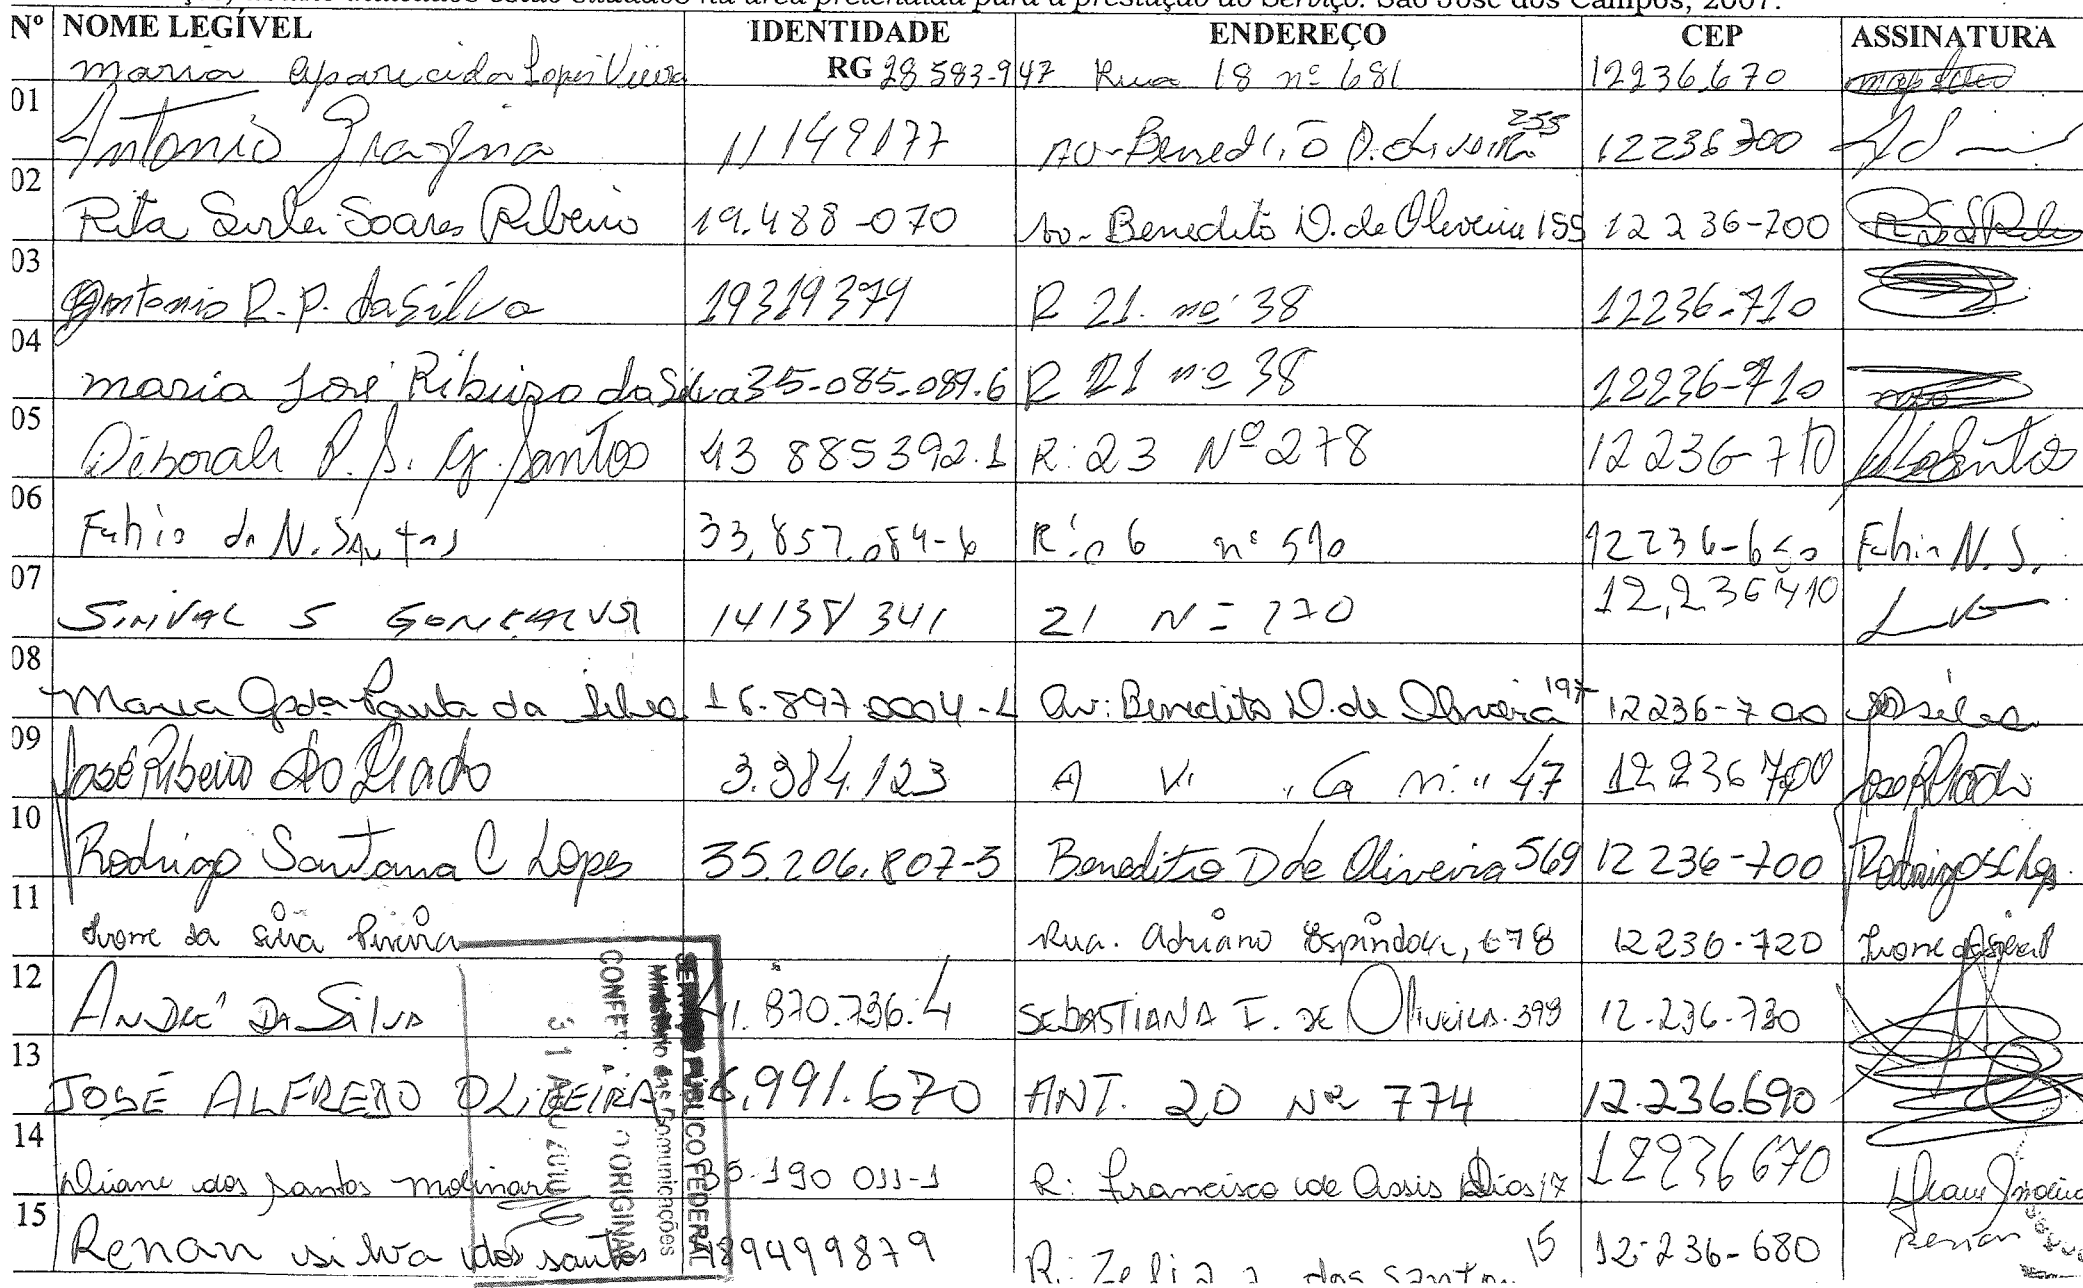 estão situados na área pretendida para a prestação do Serviço. São José dos Campos, 2007.
Nº NOME LEGÍVEL IDENTIDADE ENDEREÇO CEP ASSINATURA
maria aparecida Lopes Vieira RG 28 583-947 Rua 18 nº 681 12236670
01 Antonio 11149177 AV-Benedito D. Oliveira 255 12236700
02 Rita Surlei Soares Ribeiro 19.488-070 Av- Benedito D. de Oliveira 159 12236-700
03 Antonio R.P. da Silva 19319379 R 21. nº 38 12236-710
04 maria José Ribeiro da Silva 35-085-089.6 R 21 nº 38 12236-710
05 Déborah P. S. G. Santos 43 885392.1 R: 23 Nº 278 12236-710
06 Fabio do N. Santos 33,857.084-6 R: 6 nº 590 12236-650 Fabio N.S.
07 SINIVAL S GONCALVES 14138341 21 N= 270 12,236710
08 Maria Apda Paula da Silva 16.897 0004-1 Av: Benedito D. de Oliveira 197 12236-700
09 José Ribeiro do Prado 3.384.123 A V. " G n: " 47 12236700
10 Rodrigo Santana C Lopes 35.206.807-3 Benedito D de Oliveira 569 12236-700 RodrigoSCLopes
11 Ivone da Silva Pereira Rua. Adriano Espíndola, 678 12236-720
12 ANDRÉ DA SILVA 41.870.736.4 SEBASTIANA I. DE OLIVEIRA. 399 12.236.730
13 JOSÉ ALFREDO OLIVEIRA 6,991.670 ANT. 20 Nº 774 12.236.690
14 dos santos molinari 35-190 011-1 R: Francisco de Assis Dias 17 12236670
15 Renan silva dos santos 489499879 R.: Zelia dos santos 15 12-236-680 Renan
SERVIÇO PÚBLICO FEDERAL
Ministério das Comunicações
CONFERE O ORIGINAL
31